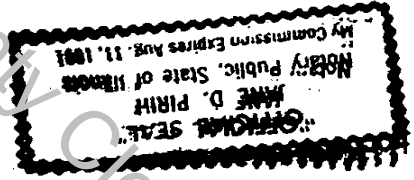 "OFFICIAL SEAL"
JANE D. PIRIH
Notary Public, State of Illinois
My Commission Expires Aug. 11, 1991